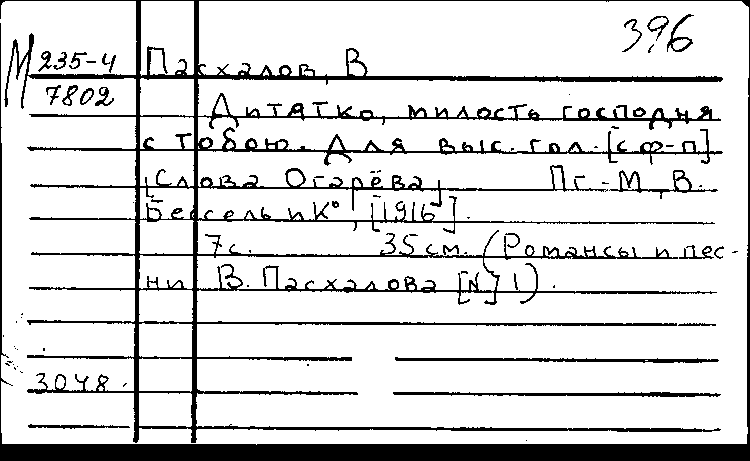 396
М 235-4 Пасхалов, В
7802
Дитятко, милость господня
с тобою. Для выс. гол. [с ф-п]
[Слова Огарёва] Пг.-М., В.
Бессель и К°, [1916].
7с. 35 см. (Романсы и пес-
ни В. Пасхалова [N] 1).
3048.